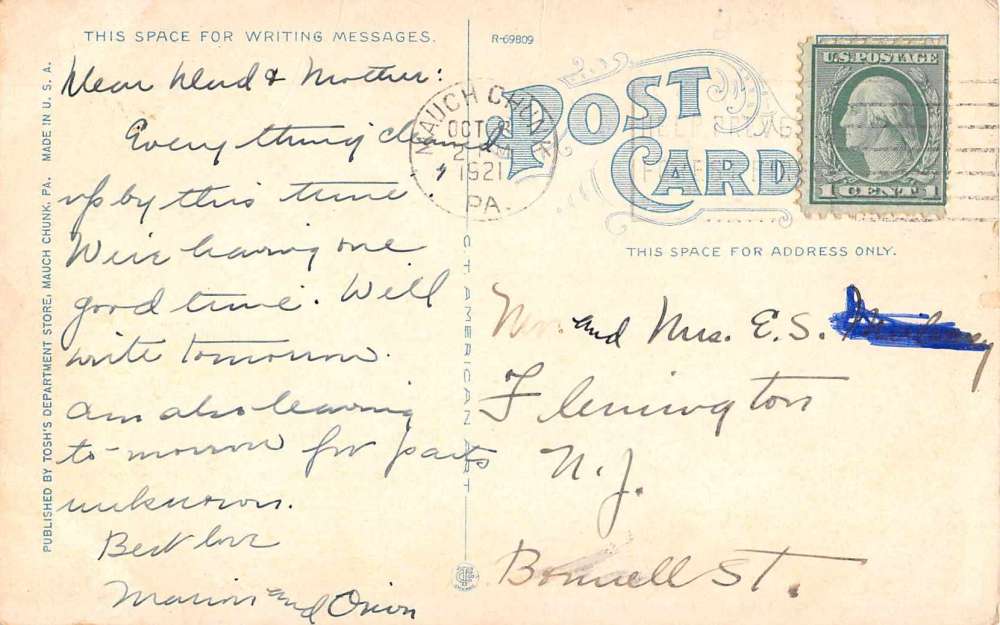 THIS SPACE FOR WRITING MESSAGES.
Dear Dad & Mother:
Everything cleaned
up by this time
We're having one
good time. Will
write tomorrow.
Am also leaving
to-morrow for parts
unknown.
Best love
Marion and Orion
PUBLISHED BY TOSH'S DEPARTMENT STORE, MAUCH CHUNK, PA. MADE IN U. S. A.
C. T. AMERICAN ART
R-69809
POST
CARD
MAUCH CHUNK
OCT
1921
PA.
U.S. POSTAGE
1 CENT 1
THIS SPACE FOR ADDRESS ONLY.
Mr. and Mrs. E. S.
Flemington
N. J.
Bonnell St.